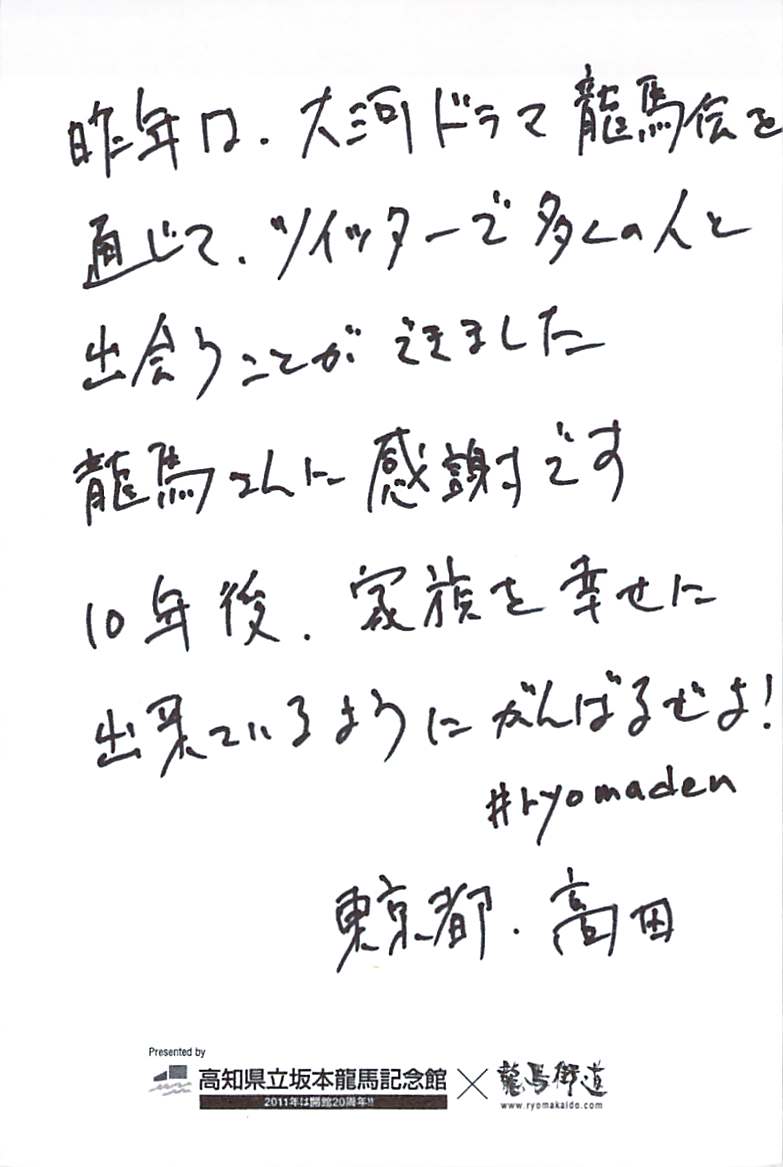 昨年は、大河ドラマ龍馬伝を
通じて、ツイッターで多くの人と
出会うことができました
龍馬さんに感謝です
10年後、家族を幸せに
出来ているようにがんばるぜよ!
#ryomaden
東京都、高田
Presented by
高知県立坂本龍馬記念館×龍馬街道
2011年は開館20周年!!
www.ryomakaido.com